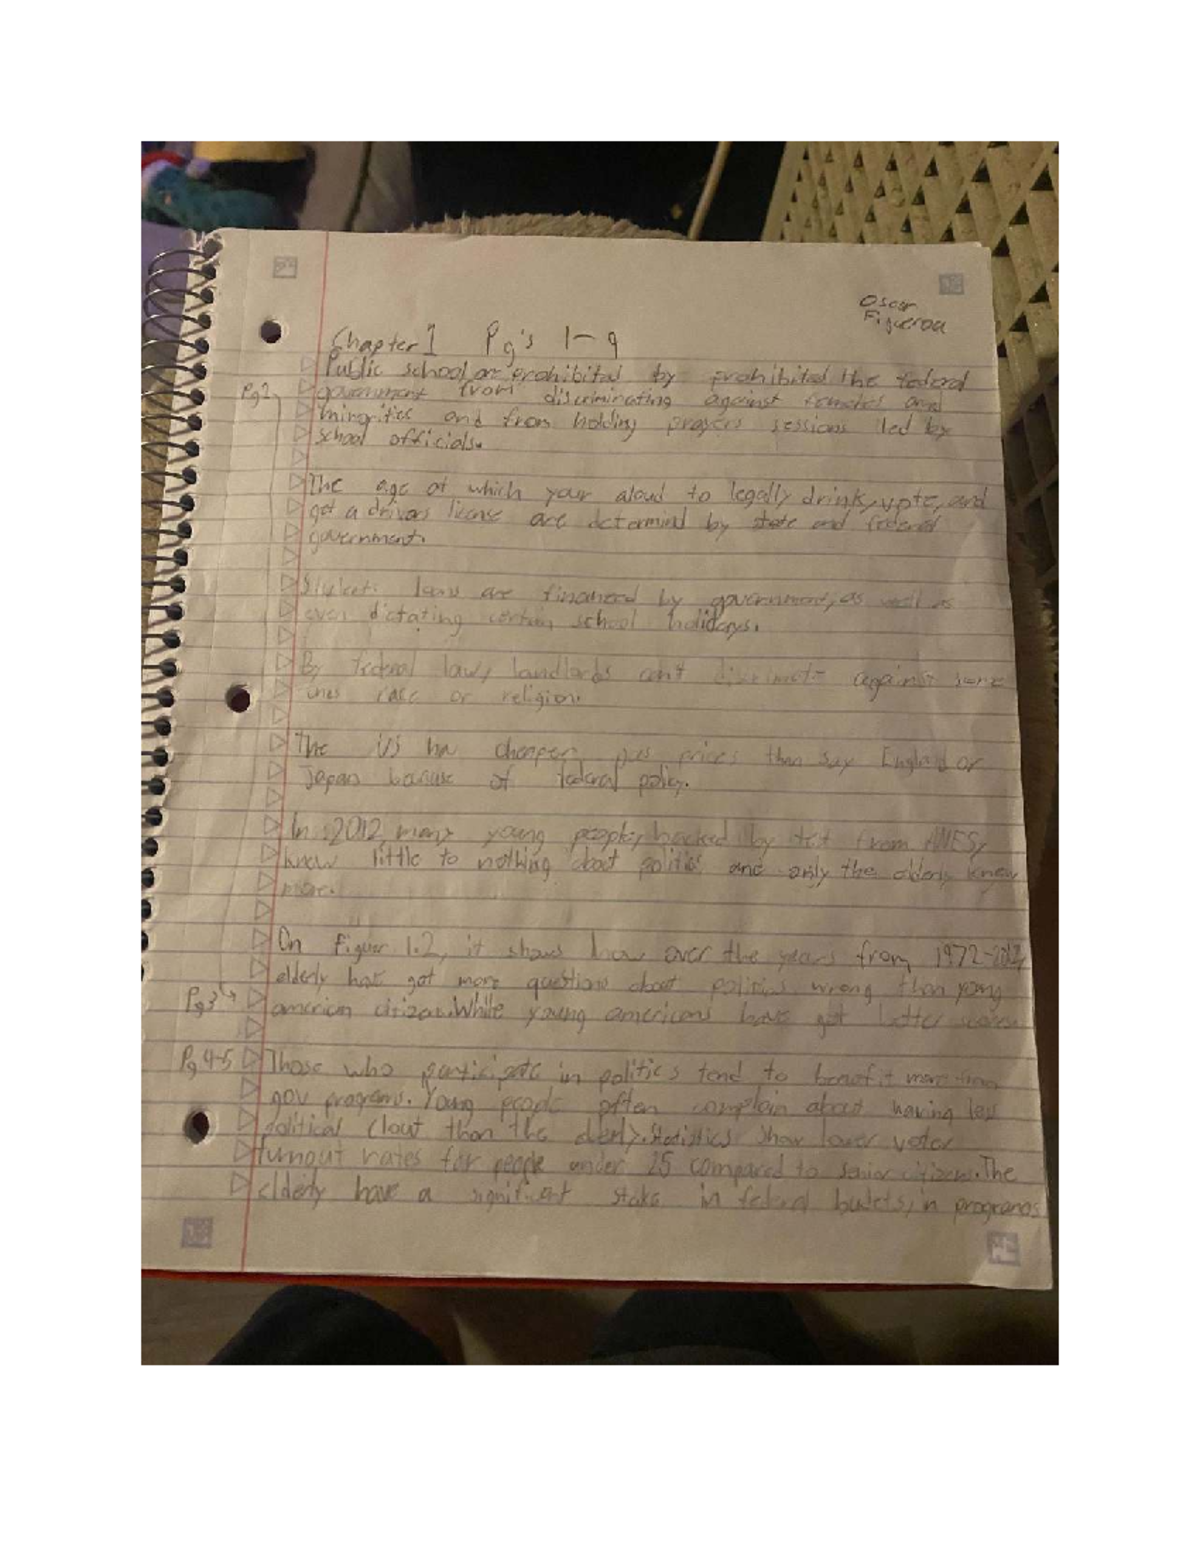 Oscar
Figueroa
Chapter 1 Pg's 1-9
Public school are prohibited by prohibited the federal
Pg 2 government from discriminating against females and
minorities and from holding prayers sessions led by
school officials.
The age at which your aloud to legally drink, vote, and
get a drivers license are determind by state and federal
government.
Student loans are financed by government, as well as
even dictating certain school holidays.
By federal law, landlords can't discriminate against
ones race or religion.
The US has cheaper gas prices than say England or
Japan because of federal policy.
In 2012, many young people, backed by from ANES,
knew little to nothing about politics and only the elderly knew
more.
On figure 1.2, it shows how over the years from 1972-2012,
elderly have got more questions about politics wrong than young
Pg 3 american citizens. While young americans have got better scores.
Pg 4-5 Those who participate in politics tend to benefit more from
gov programs. Young people often complain about having less
political clout than the elderly. Statistics show lower voter
turnout rates for people under 25 compared to senior citizens. The
elderly have a significant stake in federal budets, in programs